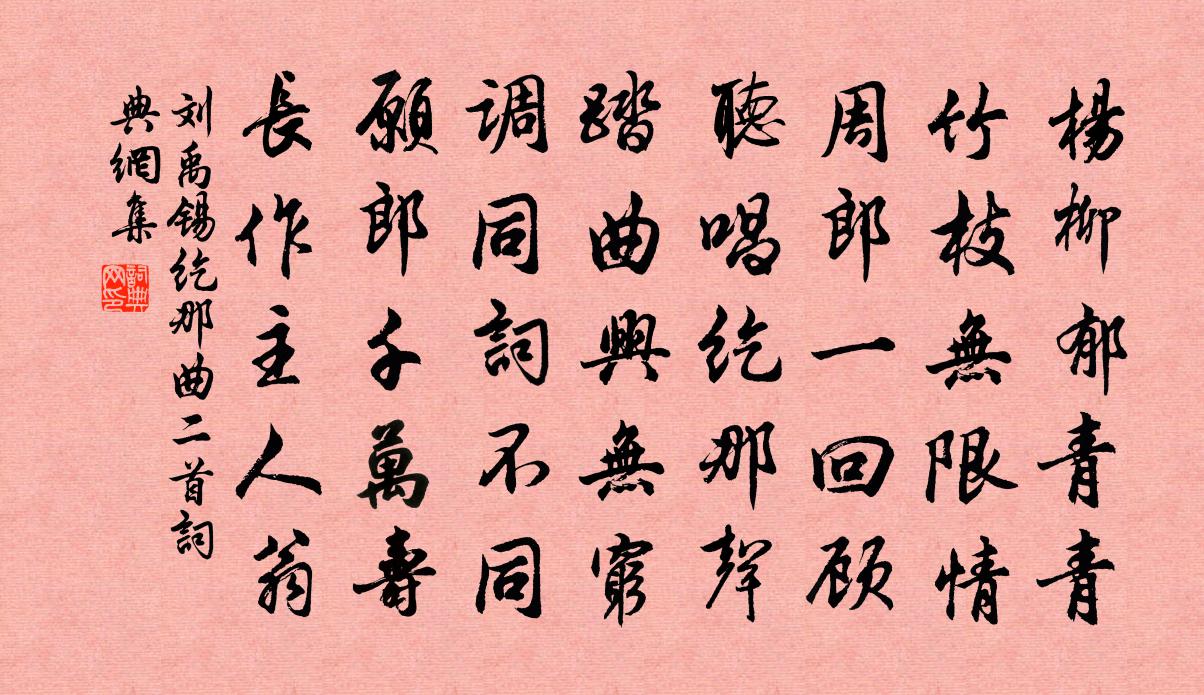 楊柳郁青青
竹枝無限情
周郎一回顾
聽唱紇那聲
踏曲興無窮
调同詞不同
願郎千萬壽
長作主人翁
刘禹锡紇那曲二首詞
典網集
詞典
网印